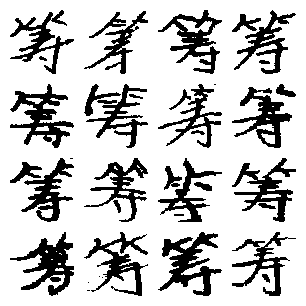 筹筹筹筹
筹筹筹筹
筹筹筹筹
筹筹筹筹